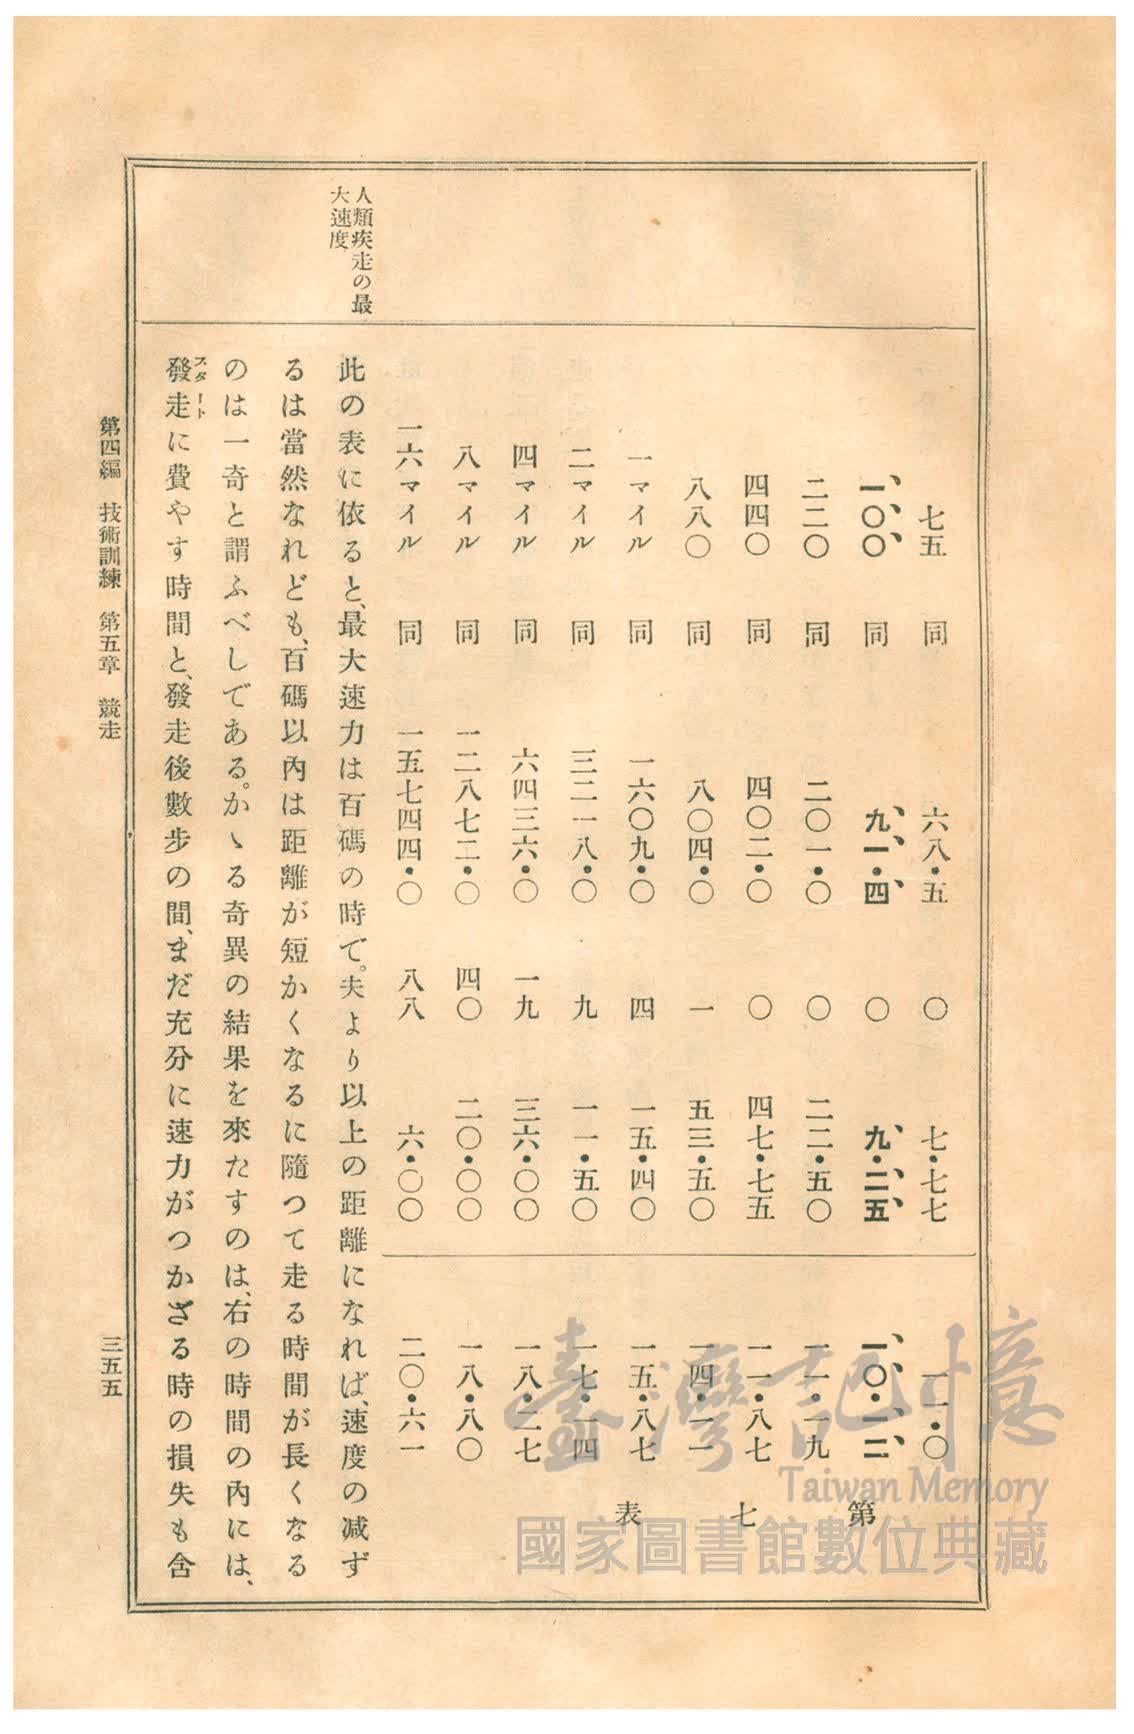 人類疾走の最
大速度
七五　同　六八・五　〇　七・七七　一一・〇
一〇〇　同　九一・四　〇　九・二五　一〇・一二
二二〇　同　二〇一・〇　〇　二二・五〇　一一・一九
四四〇　同　四〇二・〇　〇　四七・七五　一一・八七
八八〇　同　八〇四・〇　一　五三・五〇　一四・一一
一マイル　同　一六〇九・〇　四　一五・四〇　一五・八七
二マイル　同　三二一八・〇　九　一一・五〇　一七・一四
四マイル　同　六四三六・〇　一九　三六・〇〇　一八・二七
八マイル　同　一二八七二・〇　四〇　二〇・〇〇　一八・八〇
一六マイル　同　一五七四四・〇　八八　六・〇〇　二〇・六一
第七表
此の表に依ると、最大速力は百碼の時で。夫より以上の距離になれば、速度の減ず
るは當然なれども、百碼以內は距離が短かくなるに隨つて走る時間が長くなる
のは一奇と謂ふべしである。かゝる奇異の結果を來たすのは、右の時間の內には、
發走スタートに費やす時間と、發走後數步の間、まだ充分に速力がつかざる時の損失も含
第四編　技術訓練　第五章　競走
三五五
臺灣記憶
Taiwan Memory
國家圖書館數位典藏